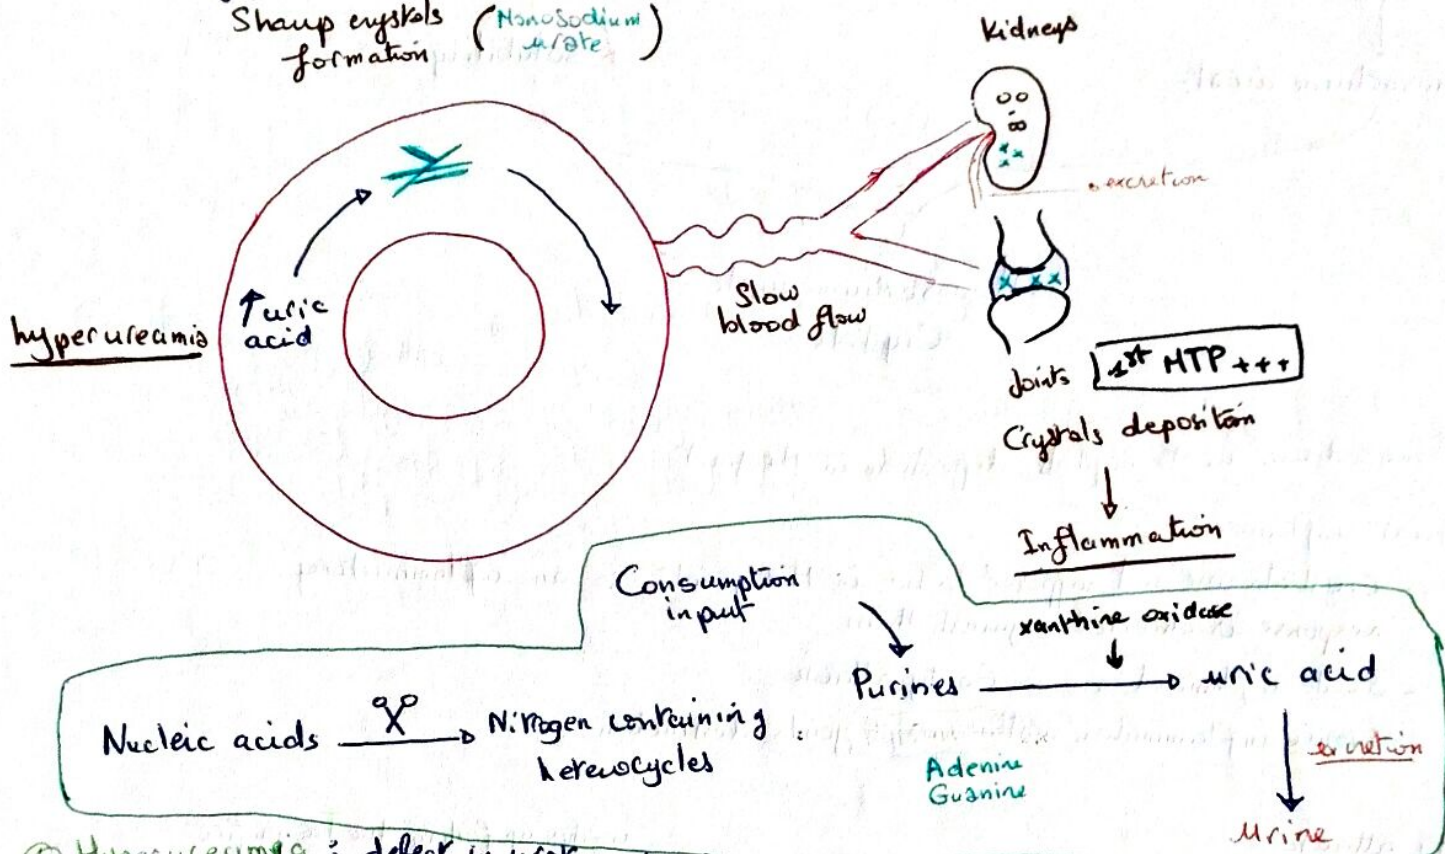 Sharp crystals
formation
(Monosodium
urate)
Kidneys
excretion
↑ uric
acid
hyperureamia
Slow
blood flow
Joints
1st MTP +++
Crystals deposition
Inflammation
Consumption
input
xanthine oxidase
Purines
uric acid
Nucleic acids
Nitrogen containing
heterocycles
Adenine
Guanine
excretion
Urine
: defect in